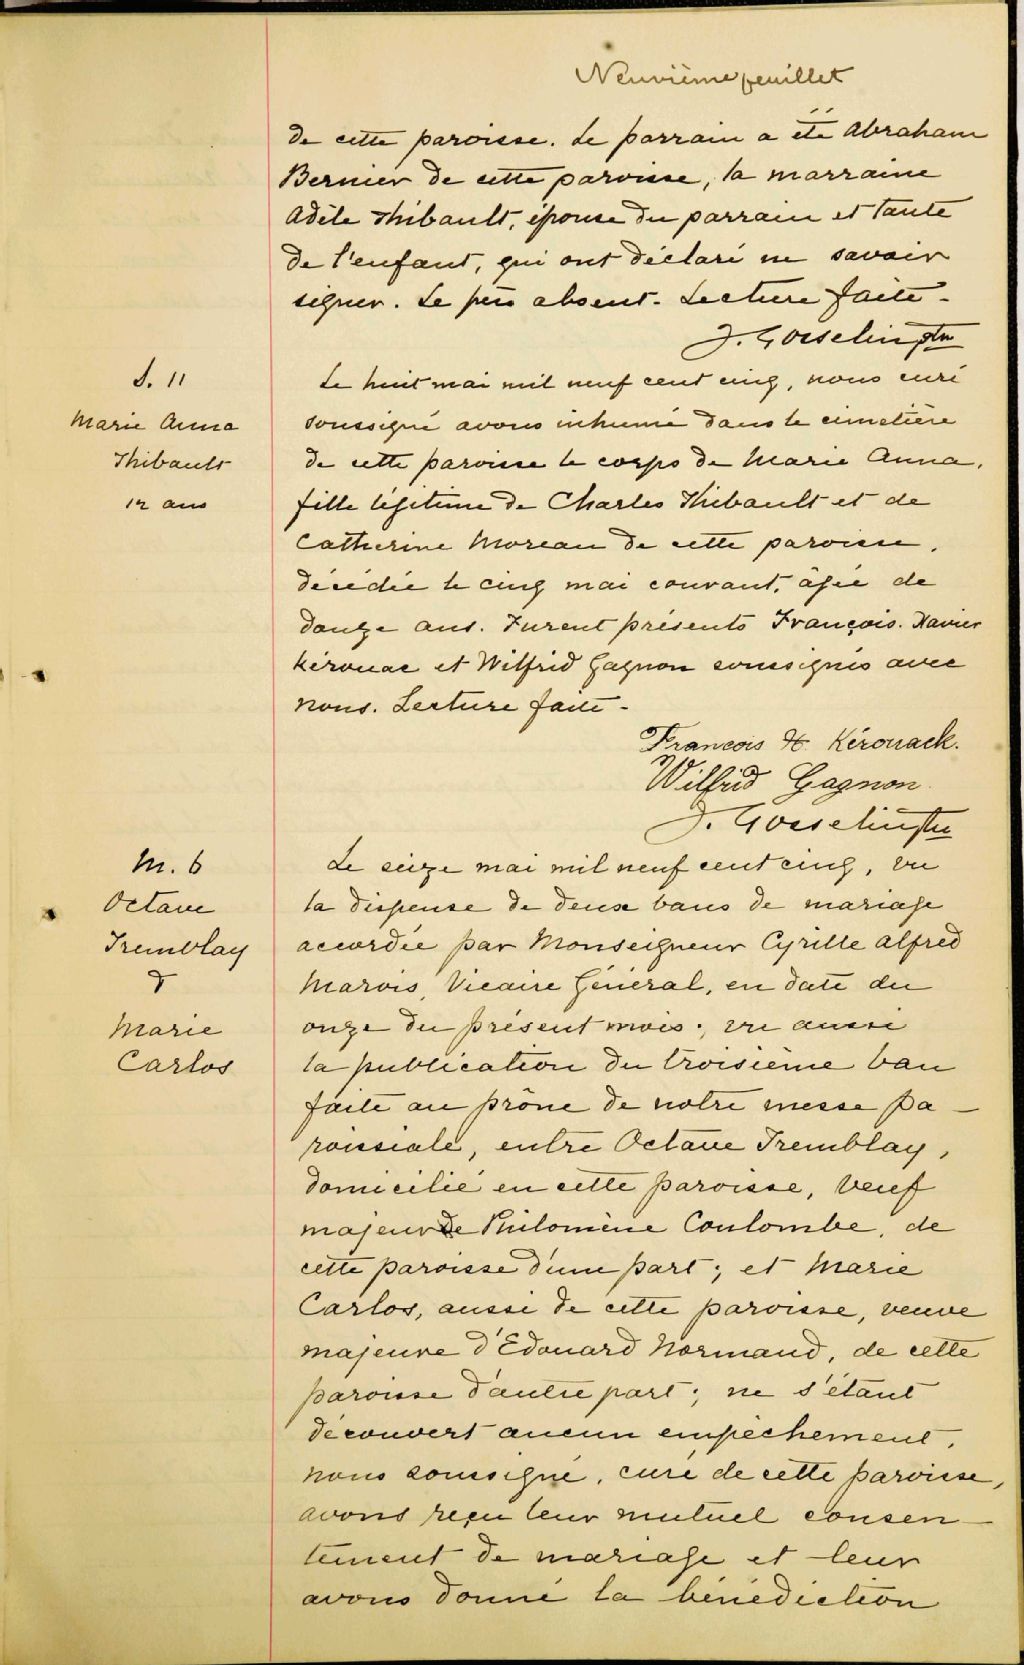 Neuvième feuillet
de cette paroisse. Le parrain a été Abraham
Bernier de cette paroisse, la marraine
Adèle Thibault, épouse du parrain et tante
de l'enfant, qui ont déclaré ne savoir
signer. Le père absent. Lecture faite.
J. Gosselin ptre
S. 11
Marie Anna
Thibault
12 ans
Le huit mai mil neuf cent cinq, nous curé
soussigné avons inhumé dans le cimetière
de cette paroisse le corps de Marie Anna,
fille légitime de Charles Thibault et de
Catherine Moreau de cette paroisse,
décédée le cinq mai courant, âgée de
douze ans. Furent présents François-Xavier
Kérouac et Wilfrid Gagnon soussignés avec
nous. Lecture faite -
François X. Kérouack.
Wilfrid Gagnon
J. Gosselin ptre
M. 6
Octave
Tremblay
&
Marie
Carlos
Le seize mai mil neuf cent cinq, vu
la dispense de deux bans de mariage
accordée par Monseigneur Cyrille Alfred
Marois, Vicaire Général, en date du
onze du présent mois; vu aussi
la publication du troisième ban
faite au prône de notre messe pa-
roissiale, entre Octave Tremblay,
domicilié en cette paroisse, veuf
majeur de Philomène Coulombe, de
cette paroisse d'une part; et Marie
Carlos, aussi de cette paroisse, veuve
majeure d'Edouard Normand, de cette
paroisse d'autre part; ne s'étant
découvert aucun empêchement,
nous soussigné, curé de cette paroisse,
avons reçu leur mutuel consen-
tement de mariage et leur
avons donné la bénédiction